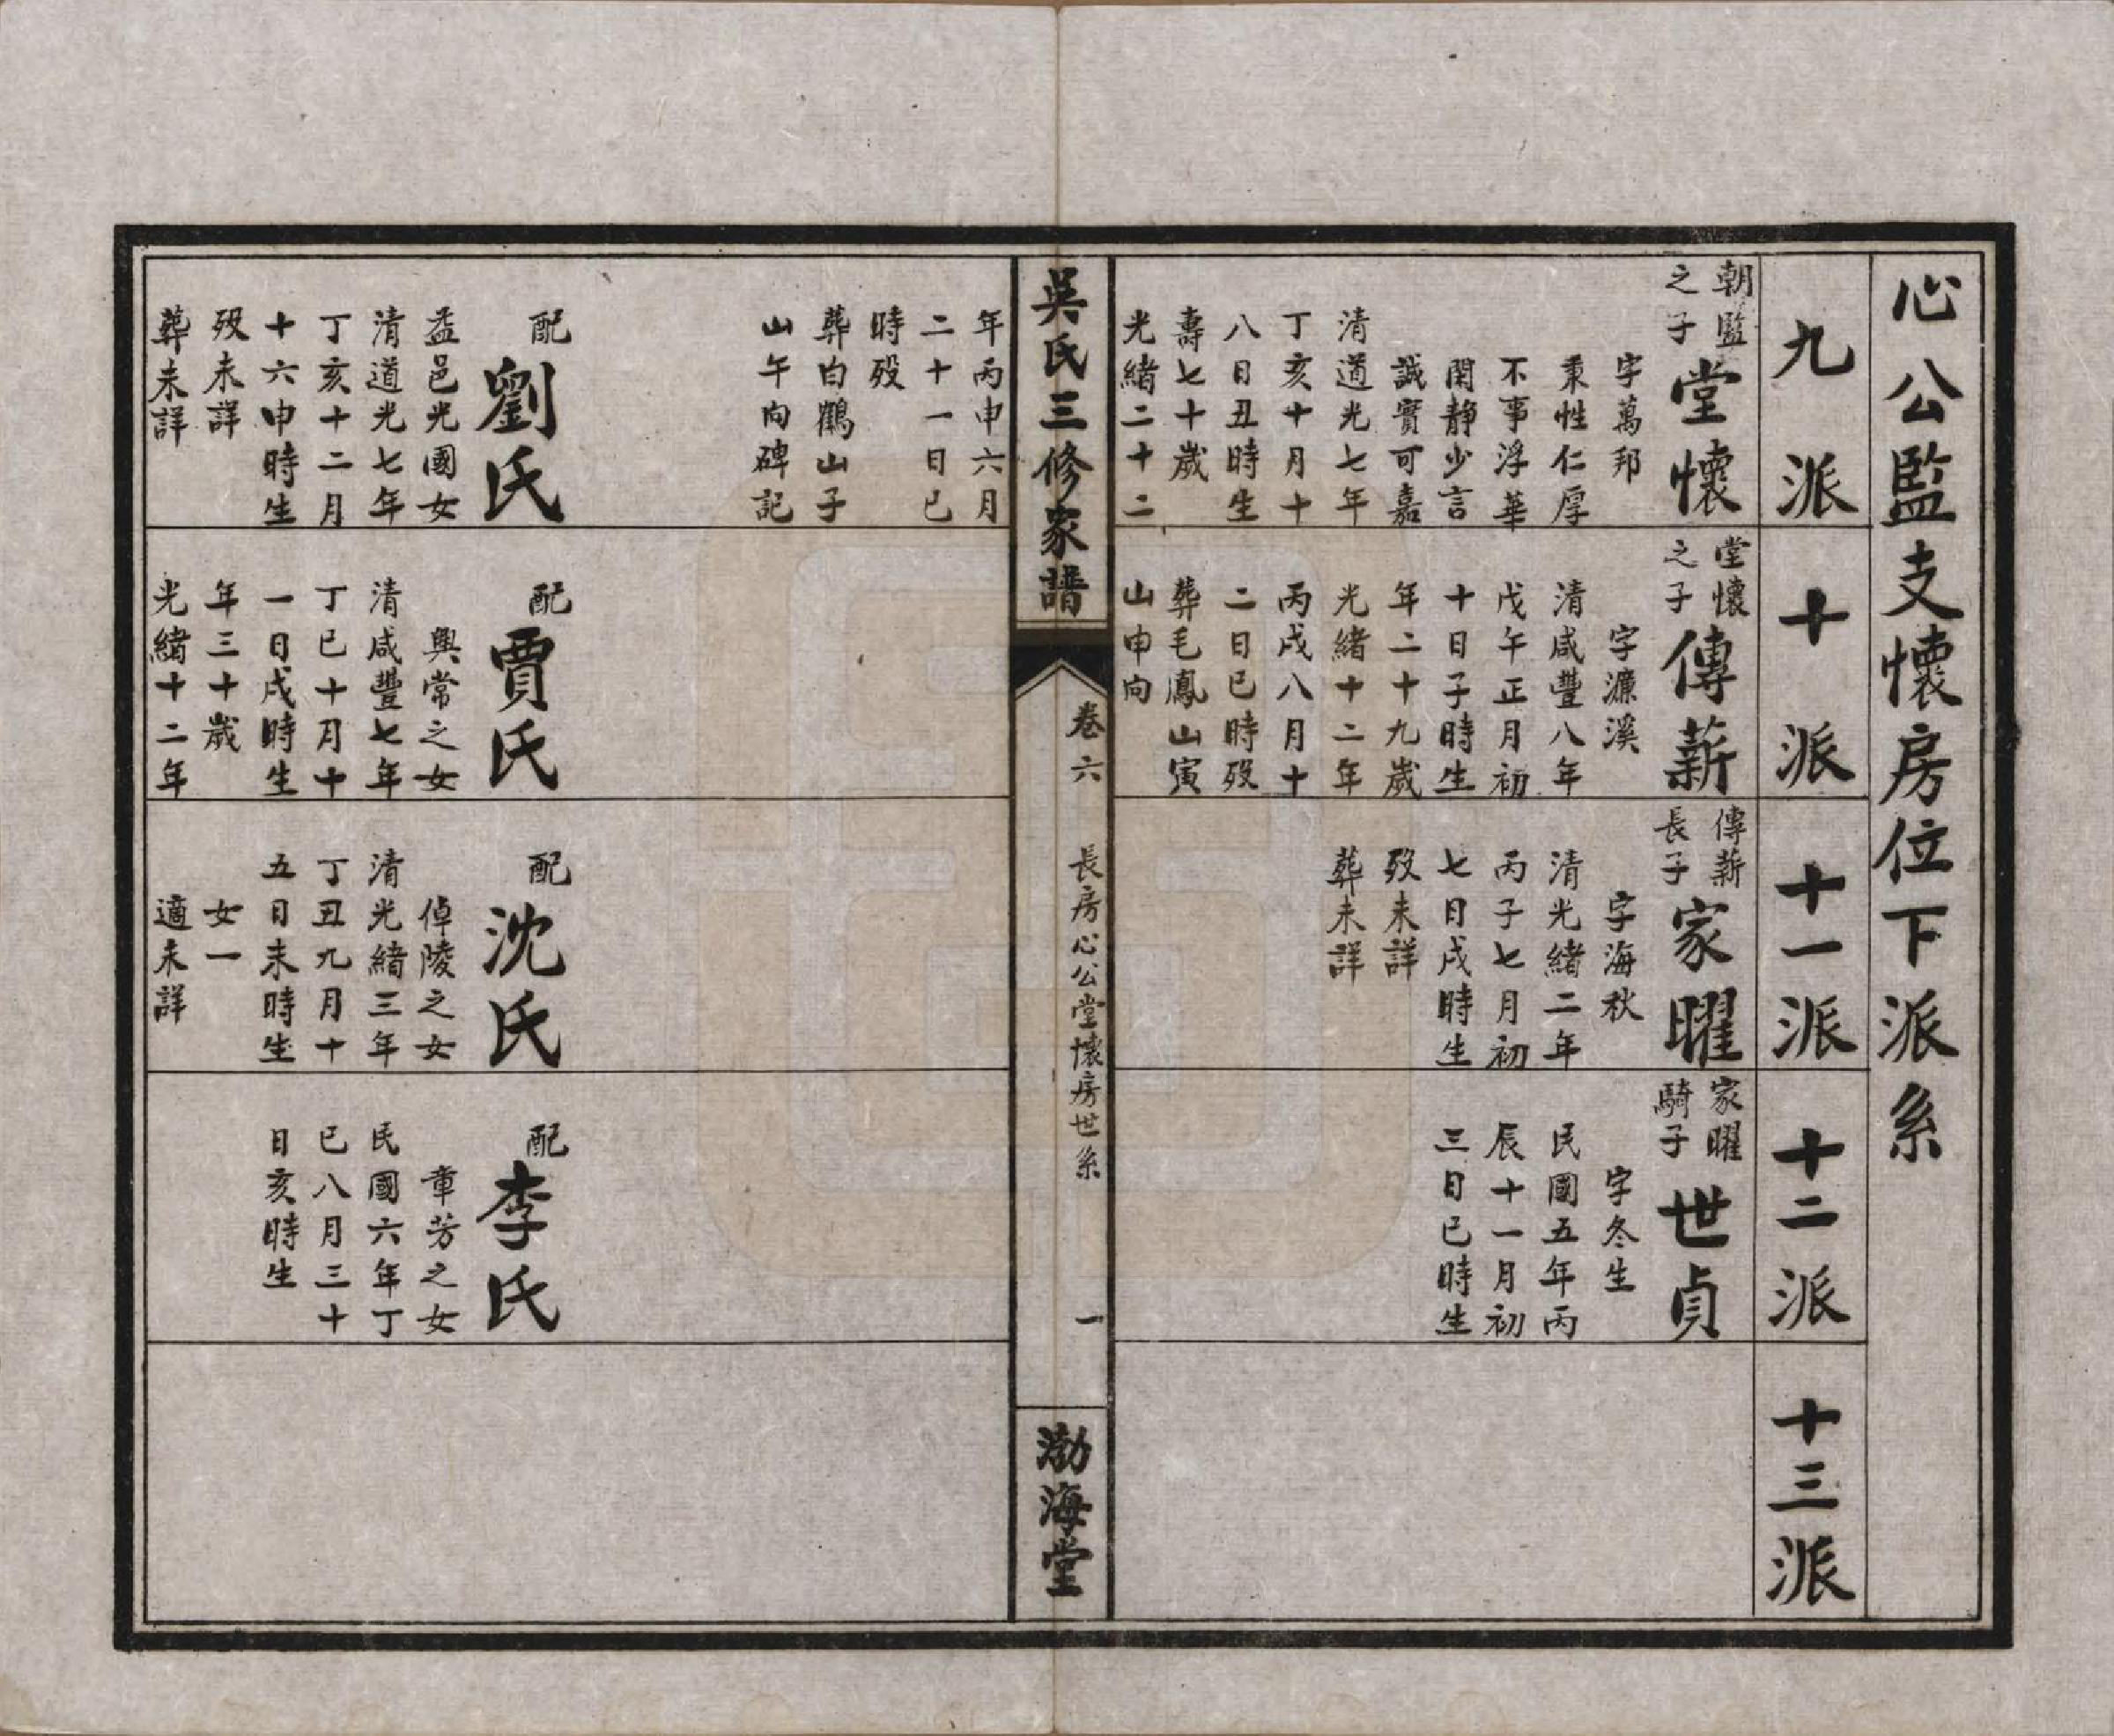 心公監支懷房位下派系
九派
朝監
之子
堂懷
字萬邦
秉性仁厚
不事浮華
閑靜少言
誠實可嘉
清道光七年
丁亥十月十
八日丑時生
壽七十歲
光緒二十二
年丙申六月
二十一日巳
時殁
葬白鶴山子
山午向碑記
配
劉氏
益邑光國女
清道光七年
丁亥十二月
十六申時生
殁未詳
葬未詳
十派
堂懷
之子
傳薪
字濂溪
清咸豐八年
戊午正月初
十日子時生
年二十九歲
光緒十二年
丙戌八月十
二日巳時殁
葬毛鳳山寅
山申向
配
賈氏
興常之女
清咸豐七年
丁巳十月十
一日戌時生
年三十歲
光緒十二年
十一派
傳薪
長子
家曜
字海秋
清光緒二年
丙子七月初
七日戌時生
殁未詳
葬未詳
配
沈氏
倬陵之女
清光緒三年
丁丑九月十
五日未時生
女一
適未詳
十二派
家曜
騎子
世貞
字冬生
民國五年丙
辰十一月初
三日巳時生
配
李氏
章芳之女
民國六年丁
巳八月三十
日亥時生
十三派
吳氏三修家譜
卷六
長房心公堂懷房世系
一
渤海堂